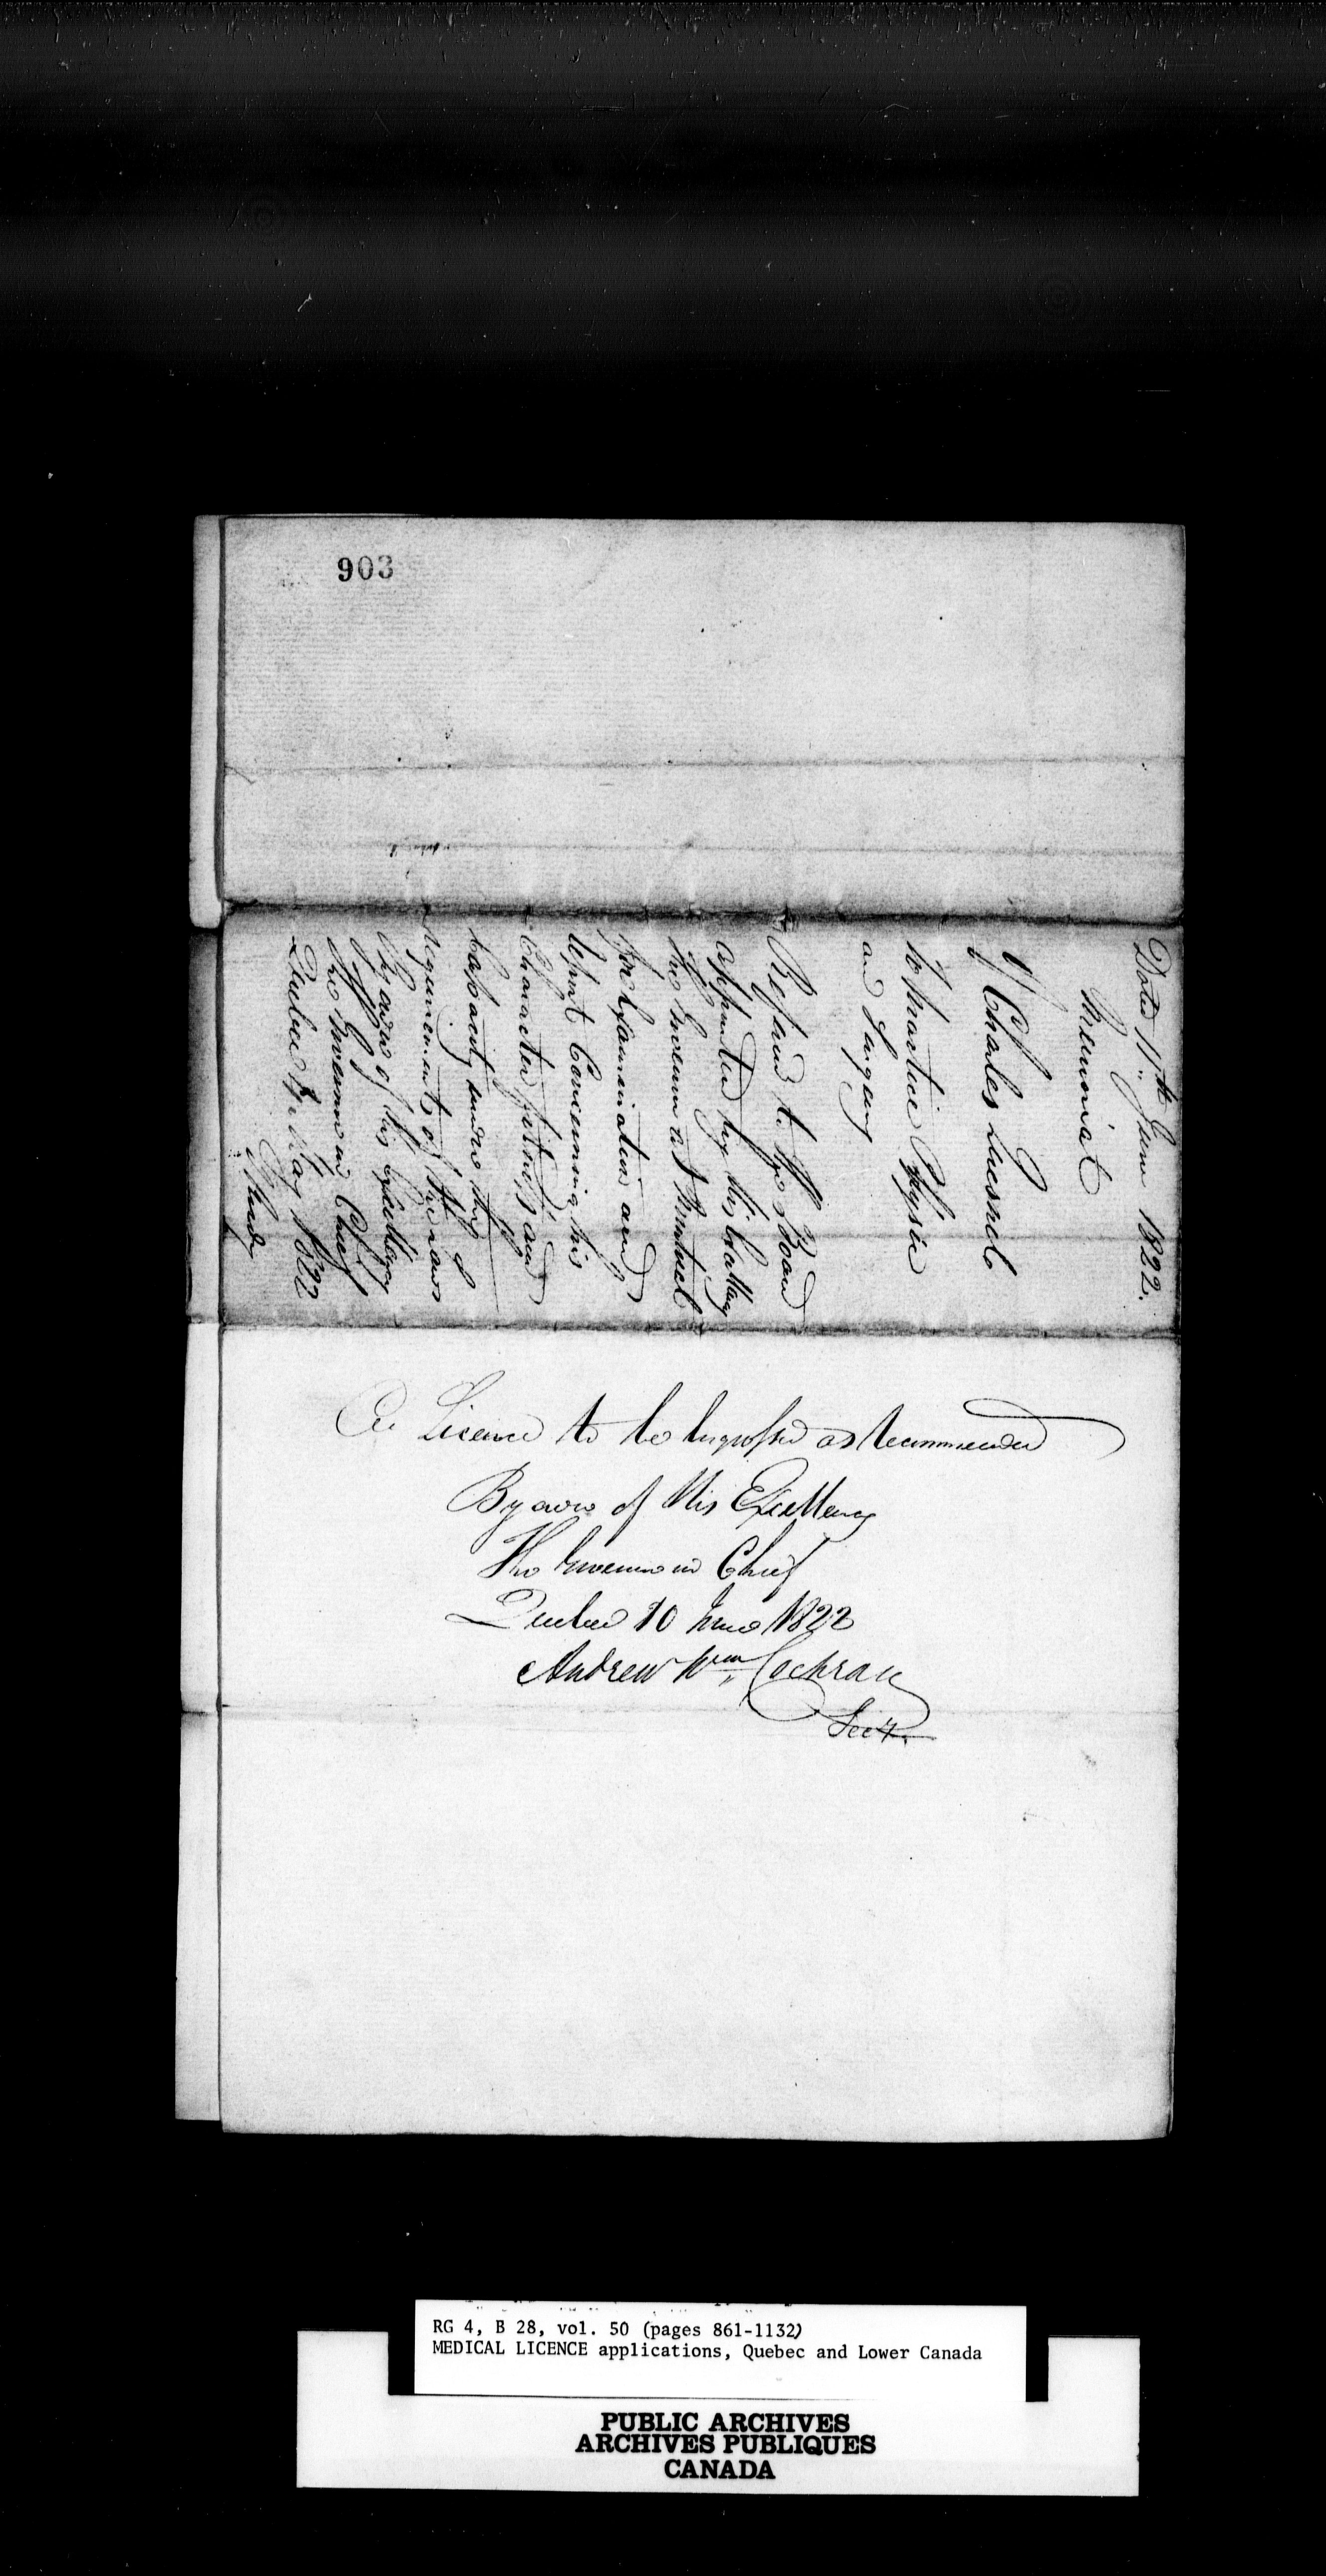 903
Dated 11th June 1822.
Memorial
Of Charles Quesnel
to practice Physic
and Surgery
Referred to the Board
appointed by His Excellency
the Governor at Montreal
for Examination and
report concerning his
Character fitness and
Capacity under the
requirements of the Law
By order of his Excellency
The Governor in Chief
Quebec May 1822
A Licence to be Engrossed as recommended
By order of His Excellency
The Governor in Chief
Quebec 10 June 1822
Andrew Wm Cochran
Secy.
RG 4, B 28, vol. 50 (pages 861-1132)
MEDICAL LICENCE applications, Quebec and Lower Canada
PUBLIC ARCHIVES
ARCHIVES PUBLIQUES
CANADA